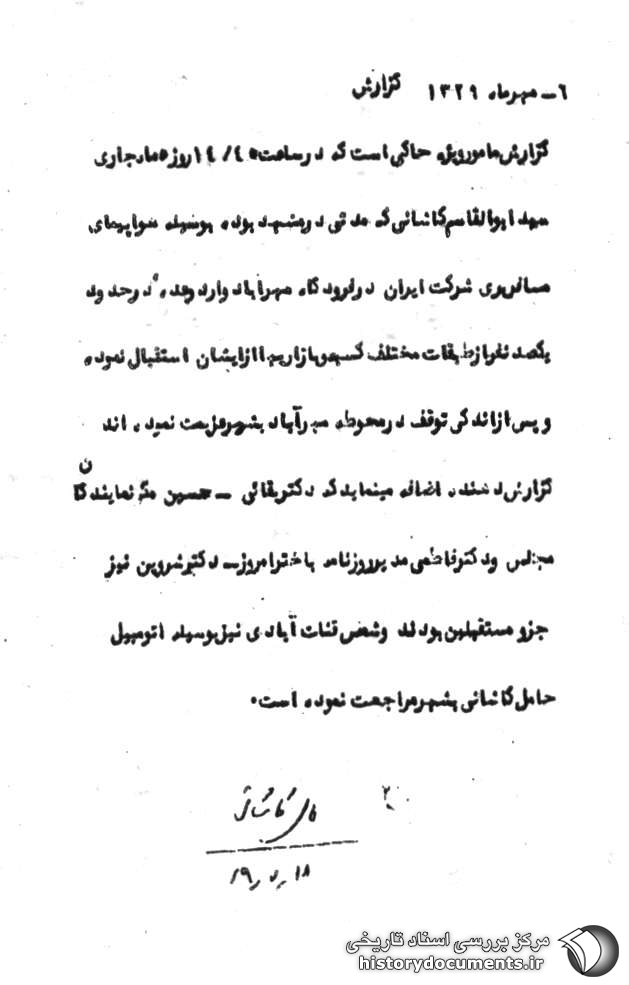 ۶ـ مهرماه ۱۳۲۹ گزارش
گزارش مامور ویژه حاکی است که در ساعت ۱۴/۴۰ روز ۵ ماه جاری
سید ابوالقاسم کاشانی که مدتی در مشهد بوده بوسیله هواپیمای
مسافربری شرکت ایران در فرودگاه مهرآباد وارد و عده در حدود
یکصد نفر از طبقات مختلف کسبه و بازاریها از ایشان استقبال نموده
و پس از اندکی توقف در محوطه مهرآباد بشهر عزیمت نموده اند
گزارش دهنده اضافه مینماید که دکتر بقائی ـ حسین مکی نمایندگان
مجلس و دکتر فاطمی مدیر روزنامه باختر امروز ـ دکتر شروین نیز
جزو مستقبلین بودند و شمس قنات آبادی نیز بوسیله اتومبیل
حامل کاشانی بشهر مراجعت نموده است.
کاشانی
مرکز بررسی اسناد تاریخی
historydocuments.ir